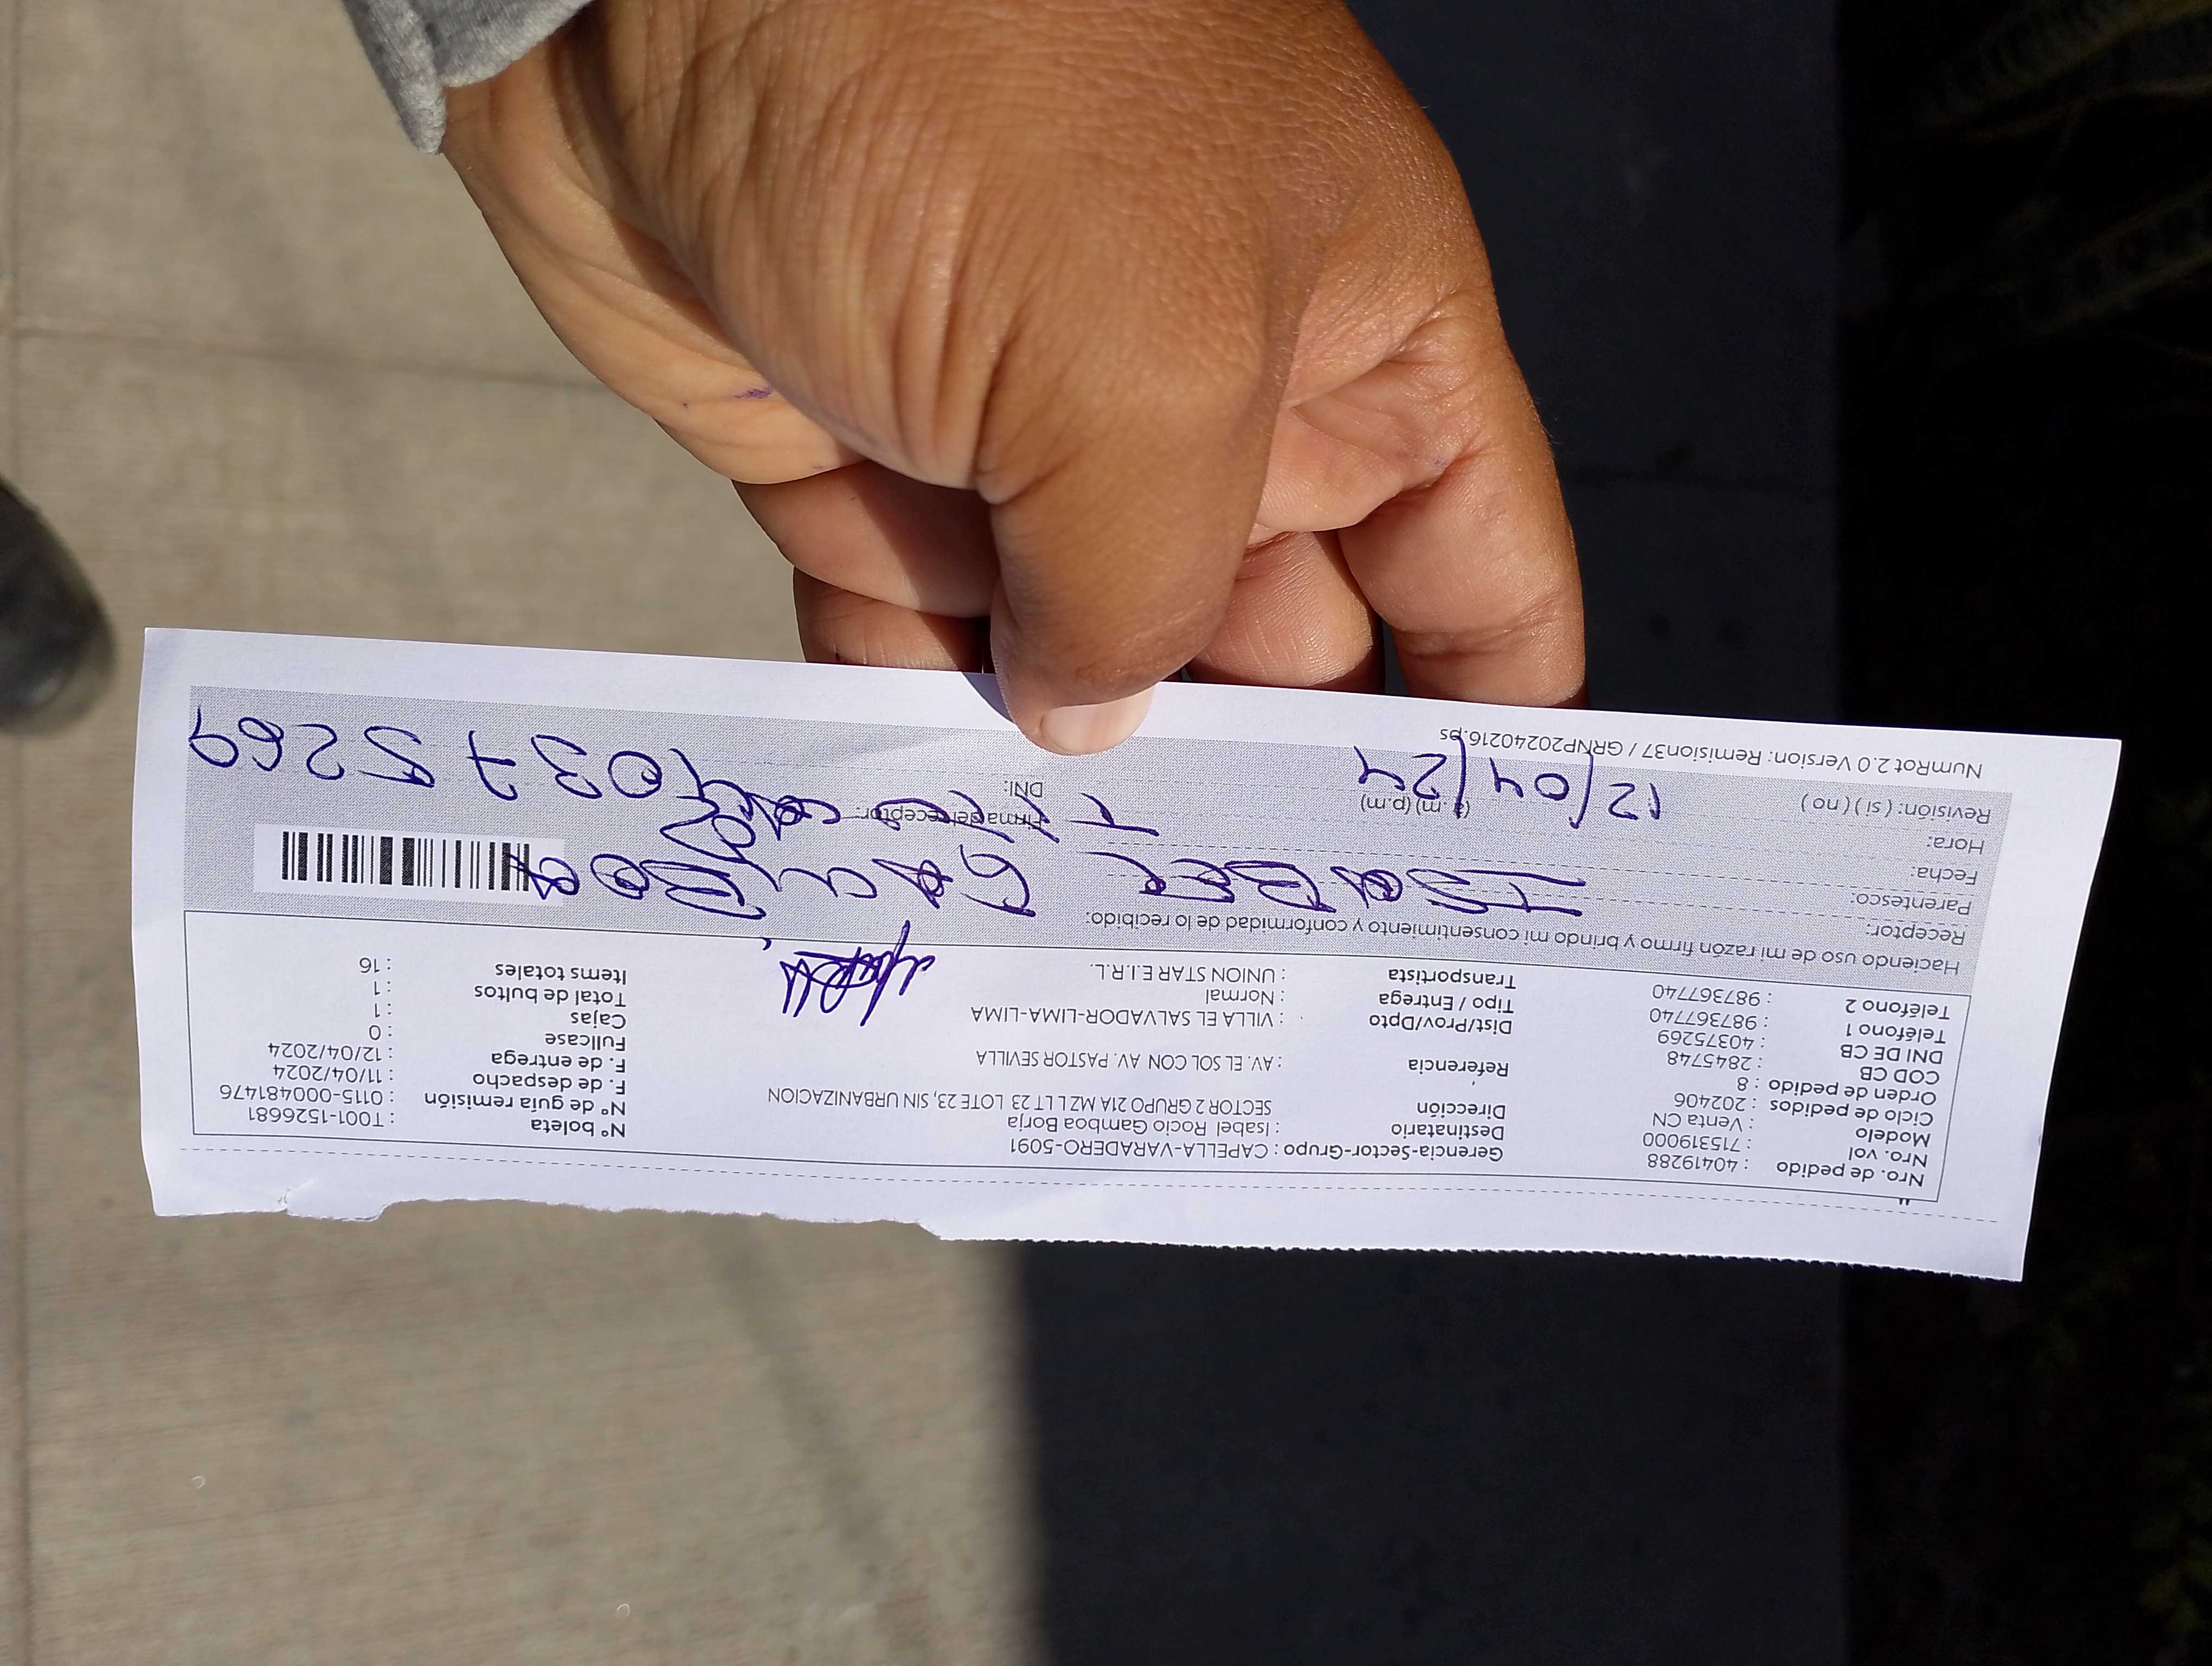 Nro. de pedido : 40419288
Nro. vol : 715319000
Modelo : Venta CN
Ciclo de pedidos : 202406
Orden de pedido : 8
COD CB : 2845748
DNI DE CB : 40375269
Teléfono 1 : 987367740
Teléfono 2 : 987367740
Gerencia-Sector-Grupo : CAPELLA-VARADERO-5091
Destinatario : Isabel Rocio Gamboa Borja
Dirección SECTOR 2 GRUPO 21A MZ L LT 23 LOTE 23, SIN URBANIZACION
Referencia : AV. EL SOL CON AV. PASTOR SEVILLA
Dist/Prov/Dpto : VILLA EL SALVADOR-LIMA-LIMA
Tipo / Entrega : Normal
Transportista : UNION STAR E.I.R.L.
Nº boleta : T001-1526681
Nº de guía remisión : 0115-000481476
F. de despacho : 11/04/2024
F. de entrega : 12/04/2024
Fullcase : 0
Cajas : 1
Total de bultos : 1
Items totales : 16
Haciendo uso de mi razón firmo y brindo mi consentimiento y conformidad de lo recibido:
Receptor: ISABEL GAMBOA
Parentesco:
Fecha: 12/04/24
Hora: (a.m) (p.m)
Revisión: ( si ) ( no )
Firma del receptor:
DNI: 40375269
NumRot 2.0 Version: Remision37 / GRNP20240216.ps